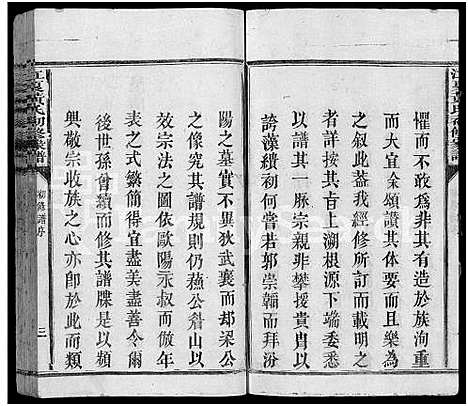 懼而不敢為非其有造於族洵重
而大宜余頌讚其体要而且樂為
之叙此我經修所訂而載明之
者詳按其旨上溯根源下端委悉
以其一脉宗親非攀援貴胄以
誇藻繢初何嘗若郭崇韜而拜汾
陽之墓實不異狄武襄而却梁公
之像究其譜規則仍蘓公眷山以
效宗法圖依歐陽永叔而倣年
表之式繁簡得宜盡美盡善令爾
後世孫曾續而修其譜牒是以頻
興敬宗收族之心亦即於此而類
江夏黃氏初修家譜
初修譜序
三
江夏黃氏初修家譜